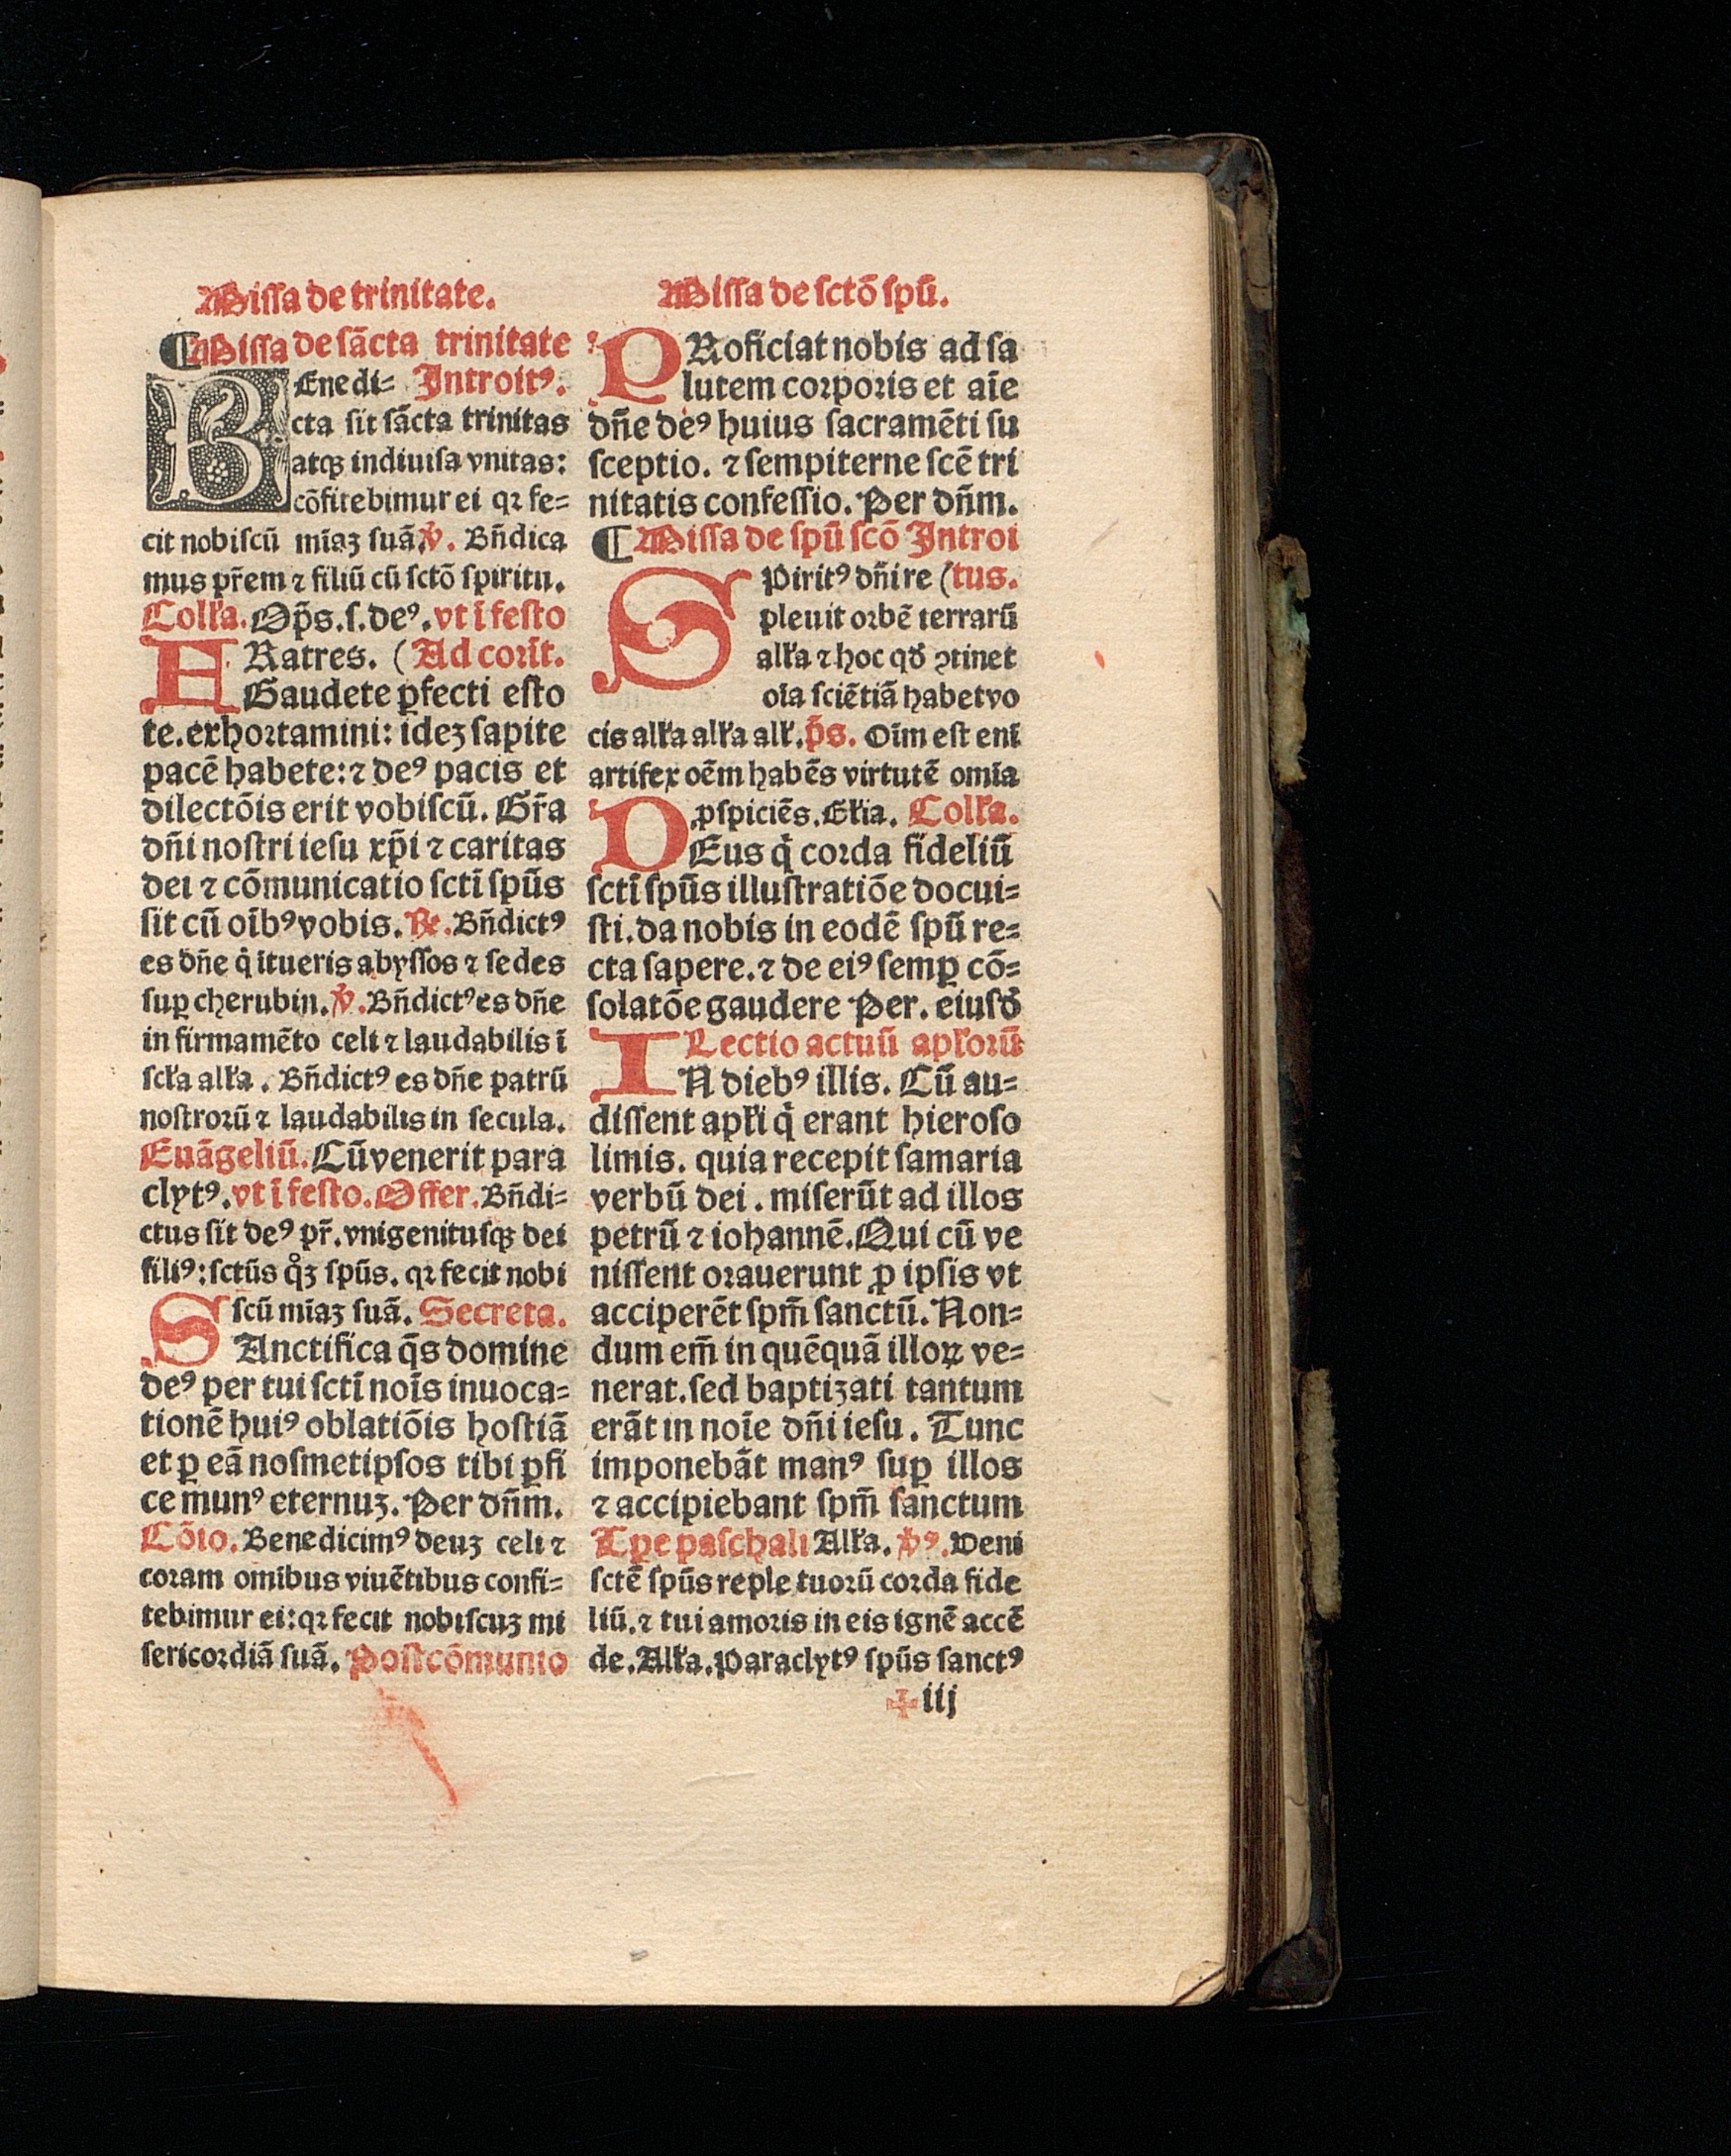 Missa de trinitate.
¶Missa de sācta trinitate
BEnedi= Introitꝰ.
cta sit sācta trinitas
atqꝫ indiuisa vnitas:
cōfitebimur ei qꝛ fe=
cit nobiscū mīaꝫ suā. ℣. Bn̄dica
mus pr̄em ⁊ filiū cū sctō spiritu.
Coll'a. Op̄s.s.deꝰ. vt ī festo
FRatres. (Ad corīt.
Gaudete ꝑfecti esto
te.exhortamini: ideꝫ sapite
pacē habete:⁊ deꝰ pacis et
dilectōis erit vobiscū. Gr̄a
dn̄i nostri iesu xp̄i ⁊ caritas
dei ⁊ cōmunicatio sctī spūs
sit cū oībꝰ vobis. ℟. Bn̄dictꝰ
es dn̄e q̇ ītueris abyssos ⁊ sedes
suꝑ cherubin. ℣. Bn̄dictꝰ es dn̄e
in firmamēto celi ⁊ laudabilis ī
scl'a all'a. Bn̄dictꝰ es dn̄e patrū
nostrorū ⁊ laudabilis in secula.
Euāgeliū. Cū venerit para
clytꝰ. vt ī festo. Offer. Bn̄di=
ctus sit deꝰ pr̄. vnigenitusqꝫ dei
filiꝰ: sctūs qͦꝫ spūs. qꝛ fecit nobi
scū mīaꝫ suā. Secreta.
SAnctifica q̄s domine
deꝰ per tui sctī noīs inuoca=
tionē huiꝰ oblatiōis hostiā
et ꝑ eā nosmetipsos tibi ꝑfi
ce munꝰ eternuꝫ. Per dn̄m.
Cōio. Benedicimꝰ deuꝫ celi ⁊
coram omībus viuētibus confi=
tebimur ei: qꝛ fecit nobiscuꝫ mi
sericordiā suā. Postcōmunio
Missa de sctō spū.
PRoficiat nobis ad sa
lutem corporis et aīe
dn̄e deꝰ huius sacramēti su
sceptio. ⁊ sempiterne scē tri
nitatis confessio. Per dn̄m.
¶Missa de spū scō Introi
SPiritꝰ dn̄i re (tus.
pleuit orbē terrarū
all'a ⁊ hoc qđ ꝯtinet
oīa sciētiā habet vo
cis all'a all'a all'. p̄s. Oīm est enī
artifex oēm habēs virtutē omīa
ꝓspiciēs. Gl'ia. Coll'a.
DEus q̇ corda fideliū
sctī spūs illustratiōe docui=
sti. da nobis in eodē spū re=
cta sapere. ⁊ de eiꝰ semꝑ cō=
solatōe gaudere Per. eiusđ
Lectio actuū apl'orū
IN diebꝰ illis. Cū au=
dissent apl'i q̇ erant hieroso
limis. quia recepit samaria
verbū dei. miserūt ad illos
petrū ⁊ iohannē. Qui cū ve
nissent orauerunt ꝓ ipsis vt
acciperēt spm̄ sanctū. Non=
dum em̄ in quēquā illoꝝ ve=
nerat. sed baptizati tantum
erāt in noīe dn̄i iesu. Tunc
imponebāt manꝰ suꝑ illos
⁊ accipiebant spm̄ sanctum
Tꝑe paschali All'a. ℣ꝰ. Veni
sctē spūs reple tuorū corda fide
liū. ⁊ tui amoris in eis ignē accē
de. All'a. Paraclytꝰ spūs sanctꝰ
✠ iij